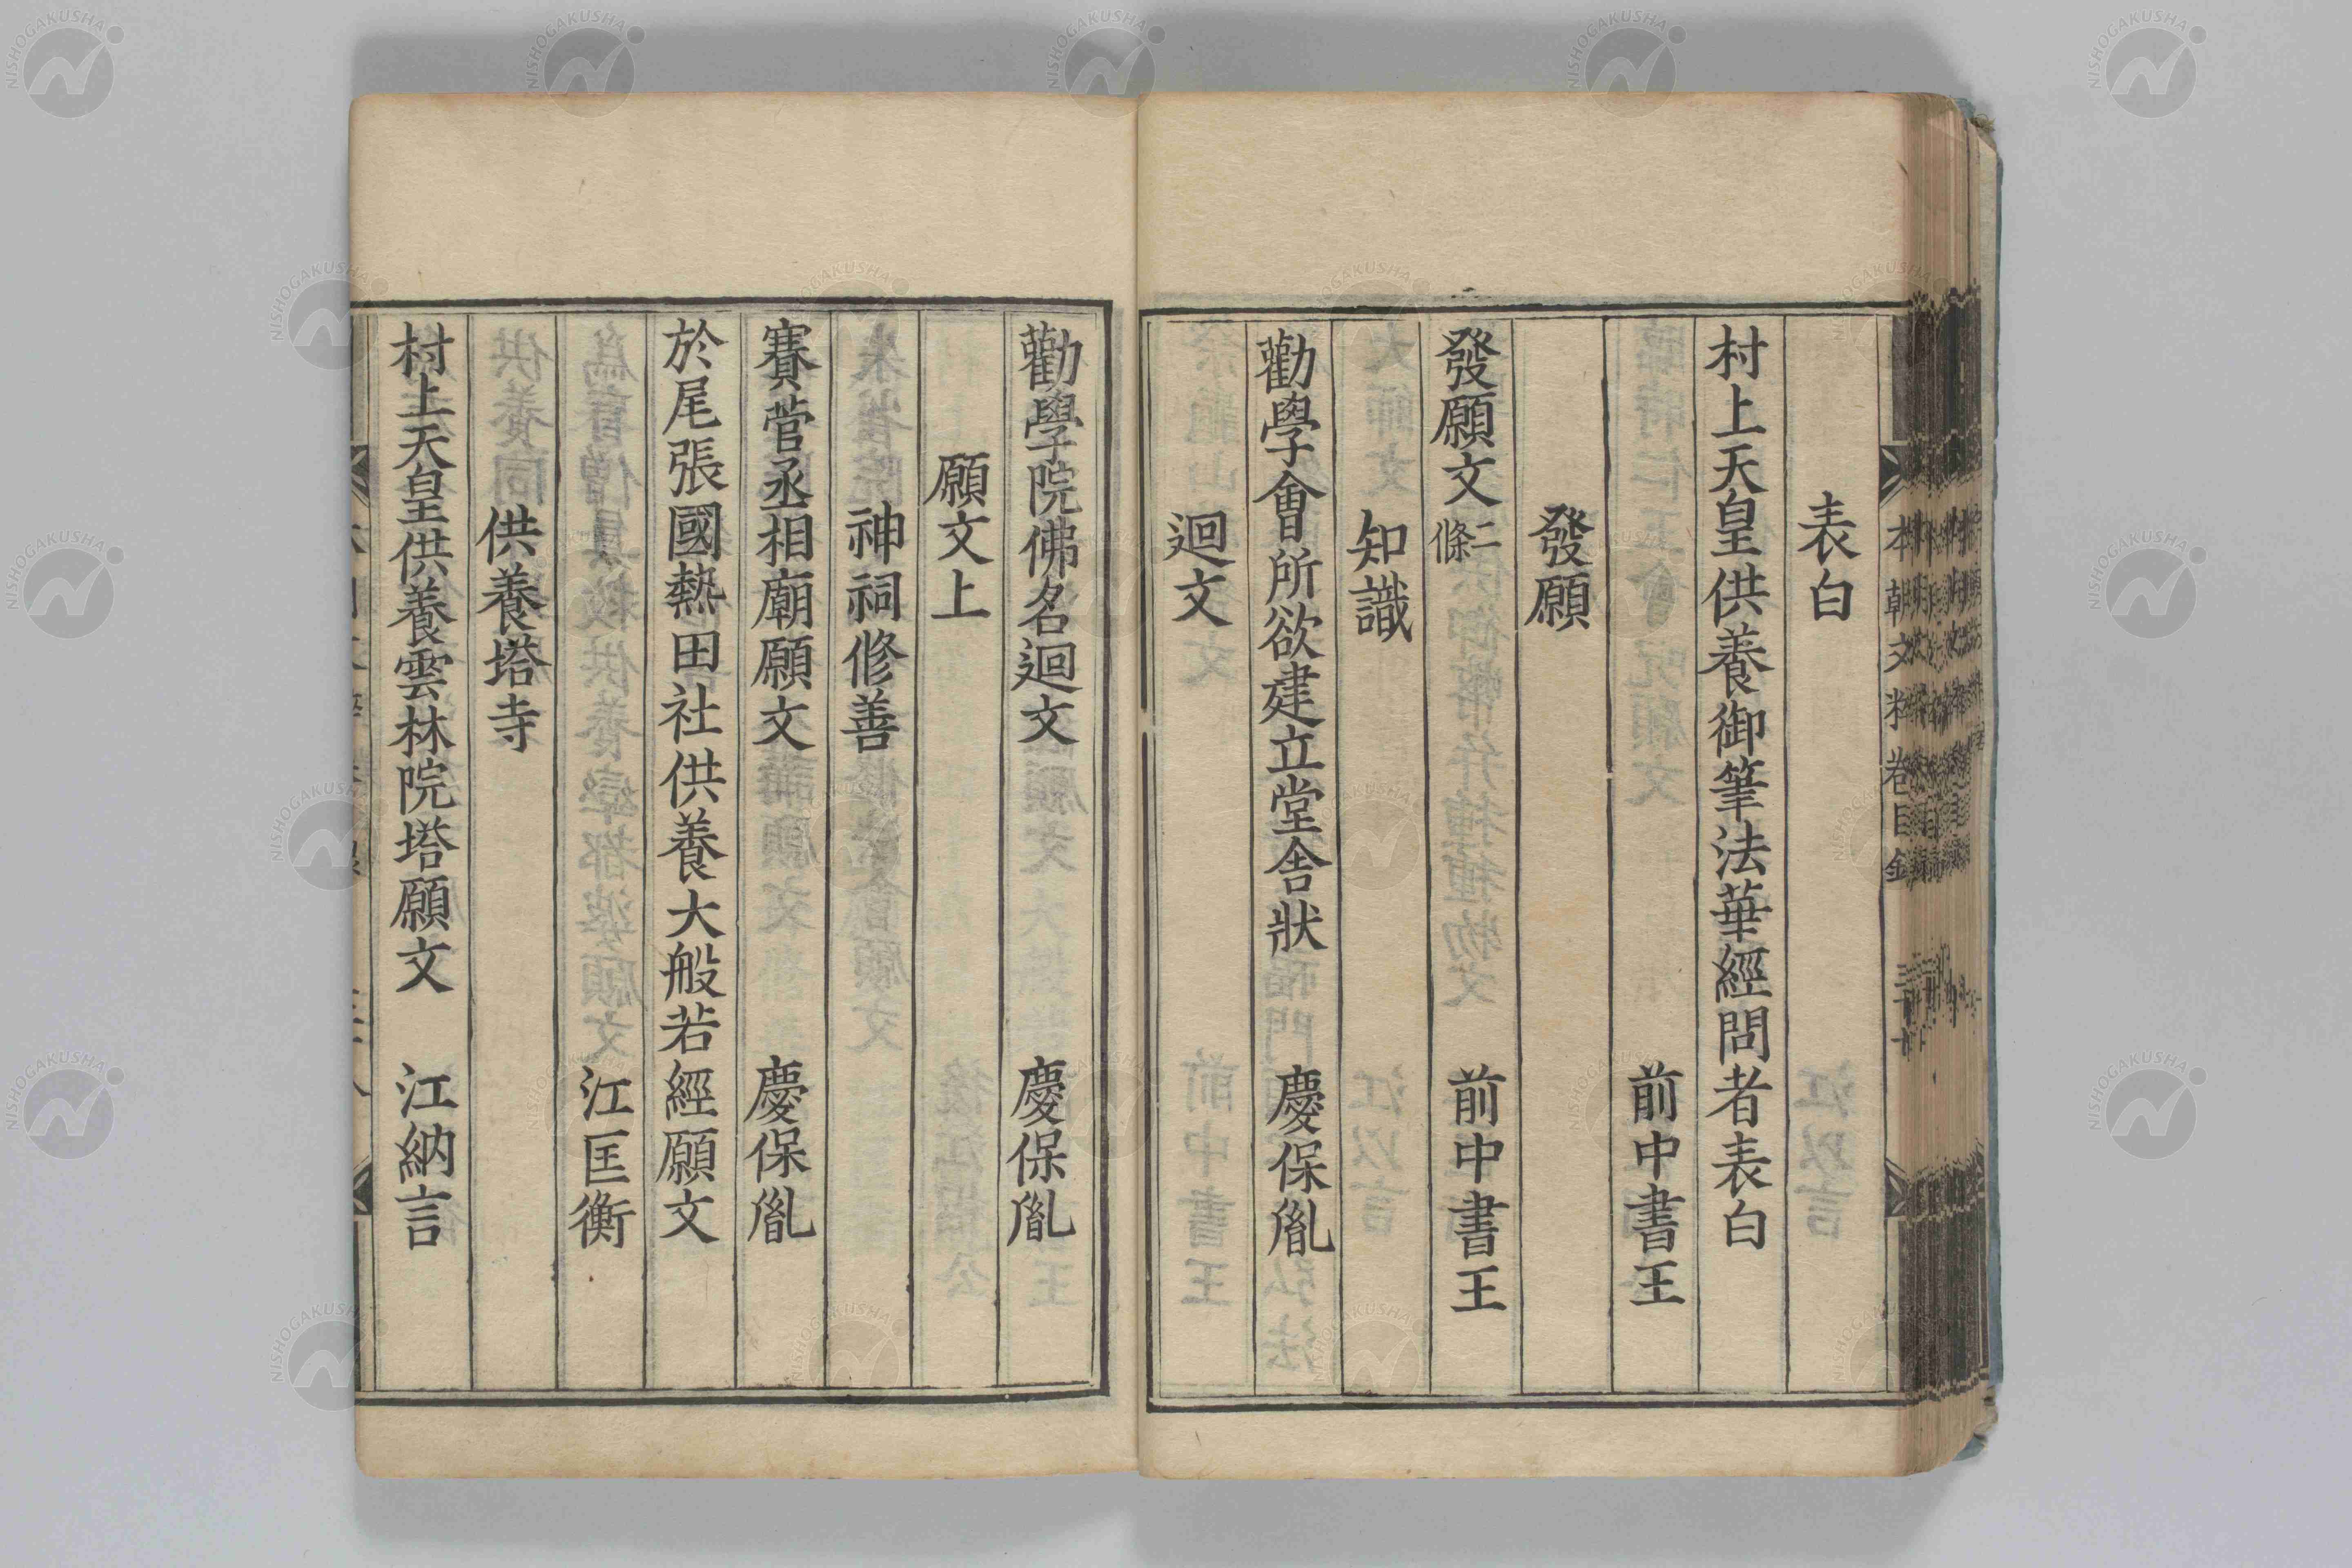 表白
村上天皇供養御筆法華經問者表白
前中書王
發願
發願文二條 前中書王
知識
勸學會所欲建立堂舎狀 慶保胤
迴文
勸學院佛名迴文 慶保胤
願文上
神祠修善
賽菅丞相廟願文 慶保胤
於尾張國熱田社供養大般若經願文
江匡衡
供養塔寺
村上天皇供養雲林院塔願文 江納言
本朝文粹卷目錄
NISHOGAKUSHA